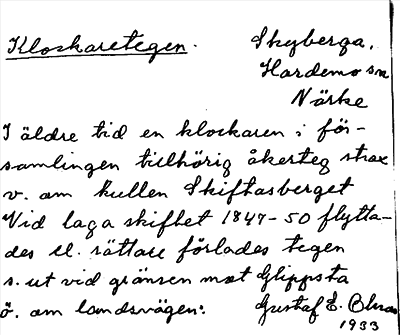 Klockaretegen. Skyberga,
Hardemo sn
Närke
I äldre tid en klockaren i för-
samlingen tillhörig åkerteg strax
v. om kullen Skiftasberget
Vid laga skiftet 1847-50 flytta-
des el. rättare förlades tegen
s. ut vid gränsen mot Glippsta
ö. om landsvägen:. Gustaf E.
1933